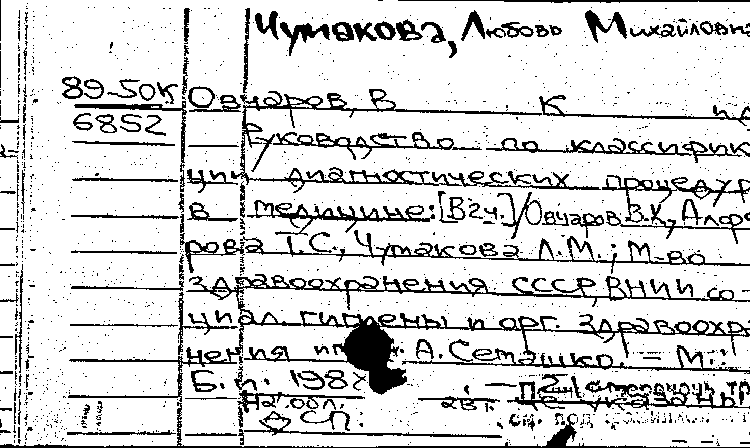 Чумакова, Любовь Михайловна
89-50К Овчаров, В К
6852 Руководство по классифик
ции диагностических процедур
в медицине: [В 2 ч.] / Овчаров В.К., Алфе
рова Т.С., Чумакова Л.М.; М-во
здравоохранения СССР, ВНИИ со-
циал. гигиены и орг. здравоохра
нения А. Семашко. - М.:
Б.и. 198
На обл.
СП. см. под